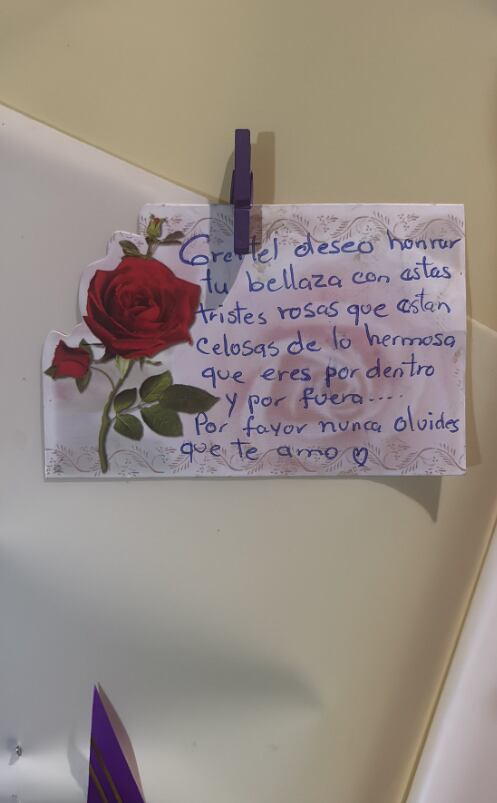 Gretel deseo honrar
tu bellaza con estas
tristes rosas que estan
celosas de lo hermosa
que eres por dentro
y por fuera....
Por favor nunca olvides
que te amo ♡